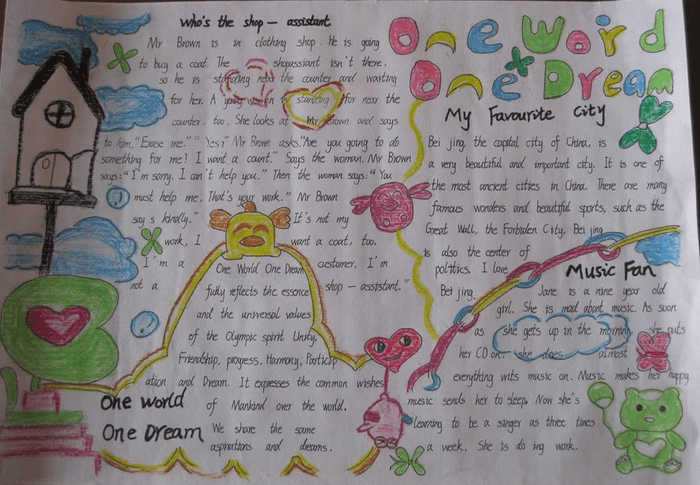 Who's the shop - assistant
Mr Brown is in clothing shop. He is going
to buy a coat. The shopassiant isn't there,
so he is near the counter and waiting
for her. A is standing for near the
counter, too. She looks at Mr Brown and says
to him, "Excuse me." "Yes?" Mr Brown asks. "Are you going to do
something for me? I want a count." Says the woman. Mr Brown
says: "I'm sorry. I can't help you." Then the woman says: "You
must help me. That's your work." Mr Brown
say s kindly." It's not my
work, I want a coat, too.
I'm a customer, I'm
not a shop - assistant."
One World One Dream
fully reflects the essence
and the universal values
of the Olympic spirit Unity,
Friendship, progress, Harmony, Particip
ation and Dream. It expresses the common wishes
of Mankind over the world.
We share the same
aspirations and dreams.
One World
One Dream
One Word
One Dream
My Favourite City
Bei jing, the capital city of China, is
a very beautiful and important city. It is one of
the most ancient cities in China. There are many
famous wonders and beautiful sports, such as the
Great Wall, the Forbiden City. Bei jing
is also the center of
politics. I love
Bei jing.
Music Fan
Jane is a nine year old
girl. She is mad about music. As soon
as she gets up in the morning, she puts
her CD on. she does almost
everything wits music on. Music makes her happy
music sends her to sleep. Now she's
learning to be a singer as three times
a week. She is do ing work.